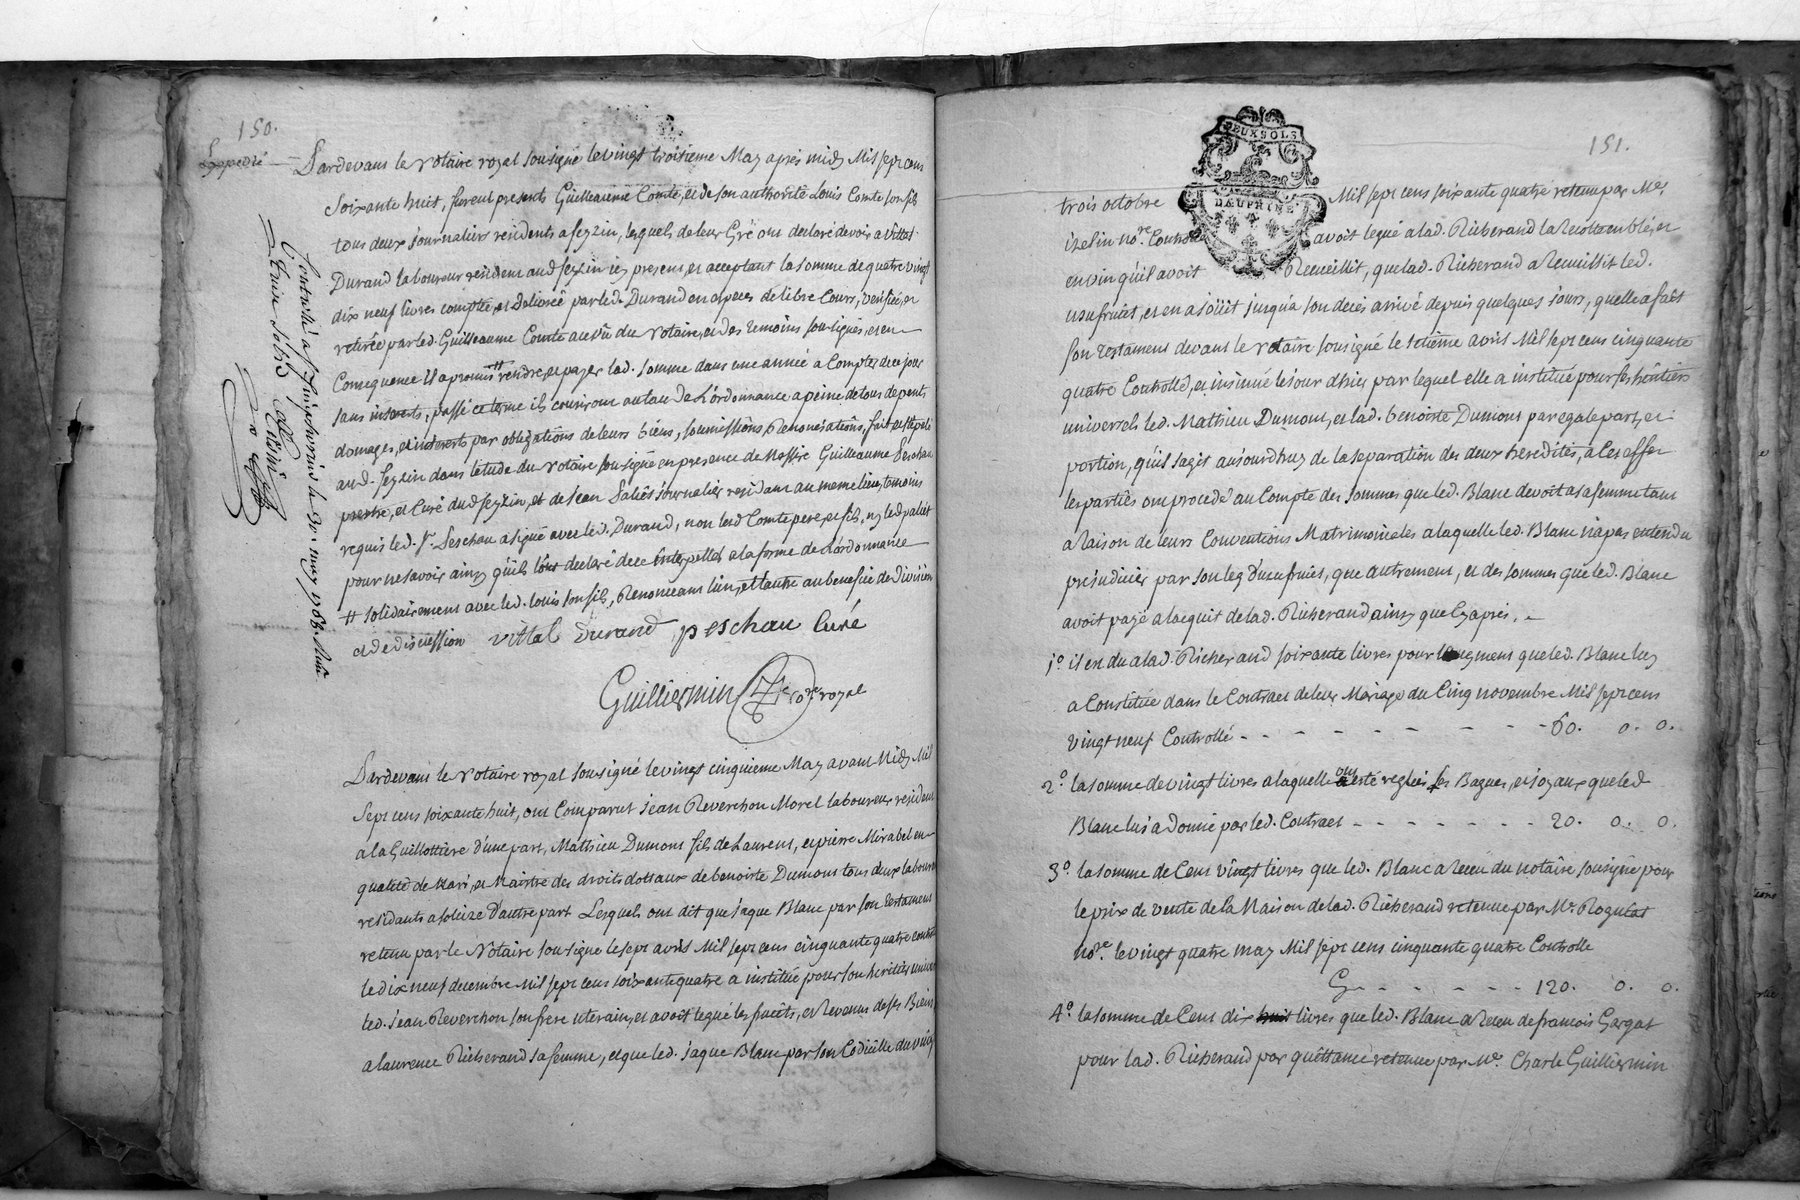 150.
Expedié
Pardevant le Notaire royal sousigné le vingt troisieme May apres midy Mil sept cens
soixante huit, furent presents Guilleaume Comte, et de son authorité Loüis Comte son fils
tous deux journaliers residents a feyzin, lesquels de leur Gré ont declaré devoir a Vittal
Durand laboureur resident aud feyzin icy present, et acceptant la somme de quatre vingt
dix neuf livres comptée, et delivrée par led. Durand en especes de libre Cours, verifiée, et
retirée par led. Guilleaume Comte au vû du Notaire, et des temoins sousignés, et en
Consequence il a promis # rendre, et payer lad. somme dans une année a Compter de ce jour
sans interets, passé ce terme ils couriront au taux de L'ordonnance a peine de tous depents
domages, et interets par obligations de leurs biens, soumissions Renonciations, fait et stipulé
aud. feyzin dans letude du Notaire sousigné en presence de Messire Guilleaume Peschau
prestre, et Curé dud feyzin, et de Jean journalier resident au meme lieu, temoins
requis led. Sr. Peschau a signé avec led. Durand, non lesd Comte pere, et fils, ny led
pour ne savoir ainsy qu'ils l'ont declaré de ce interpellés a la forme de L'ordonnance
# solidairement avec led. loüis son fils, Renonceant lun, et lautre au benefice de division
et de discussion Vittal Durand peschau Curé
Guilliermin Nore royal
Controllé a St Simphorien le 30. may 1768. Reçu
treize sols
Pardevant le Notaire royal sousigné le vingt cinquieme May avant Midy Mil
Sept cens soixante huit, ont comparut Jean Reverchon Morel laboureur resident
a la Guillottiere d'une part, Mathieu Dumont fils de Laurent, et pierre Mirabel en
qualité de Mari, et Maistre des droits dottaux de benoiste Dumont tous deux laboureurs
residants a d'autre part Lesquels ont dit que Jaque Blanc par son testament
retenu par le Notaire sousigné le sept avril Mil sept cens cinquante quatre controllé
le dix neuf decembre Mil sept cens soixante quatre a institué pour son heritier universel
led. Jean Reverchon son frere uterain, et avoit legué les fruits, et Revenus de ses Biens
a laurence Richerand sa femme, et que led. Jaque Blanc par son Codicille du vingt
151.
DEUX SOLS
DAUPHINÉ
trois octobre Mil sept cens soixante quatre retenu par Me
nore. Controllé avoit legué a lad. Richerand la Recolte en bled, et
en vin qu'il avoit Recueillit, que lad. Richerand a Recueillit led.
usufruit, et en a joüit jusqu'a son decès arrivé depuis quelques jours, quelle a fait
son testament devant le Notaire sousigné le septieme avril Mil sept cens cinquante
quatre Controllé, et insinué le jour d'hier par lequel elle a institué pour ses heritiers
universels led. Mathieu Dumont, et lad. benoiste Dumont par egale part, et
portion, qu'il s'agit aujourdhuy de la separation des deux heredités, a cet effet
les parties ont procedé au Compte des sommes que led. Blanc devoit a sa femme tant
a raison de leurs Conventions Matrimoniales a laquelle led. Blanc n'a pas entendu
prejudicier par son leg d'usufruit, que autrement, et des sommes que led. Blanc
avoit payé a lacquit de lad. Richerand ainsy que Cy apres.
1o. il est du a lad. Richerand soixante livres pour laugment que led. Blanc luy
a Constitué dans le Contract de leur Mariage du Cinq novembre Mil sept cens
Vingt neuf Controllé - - - - - - - 60. 0. 0.
2o. la somme de vingt livres a laquelle ont eté reglés les Bagues, et joyaux que led
Blanc lui a donné par led. Contract - - - - - - 20. 0. 0.
3o. la somme de Cent vingt livres que led. Blanc a Reçeu du notaire sousigné pour
le prix de vente de la Maison de lad. Richerand retenue par Me. Rogniat
nore. le vingt quatre may Mil sept cens cinquante quatre Controllé
Cy - - - - - 120. 0. 0.
4o. la somme de Cent dix livres que led. Blanc a Reçeu de francois Gargat
pour lad. Richerand par quittance retenue par Me. Charle Guilliermin